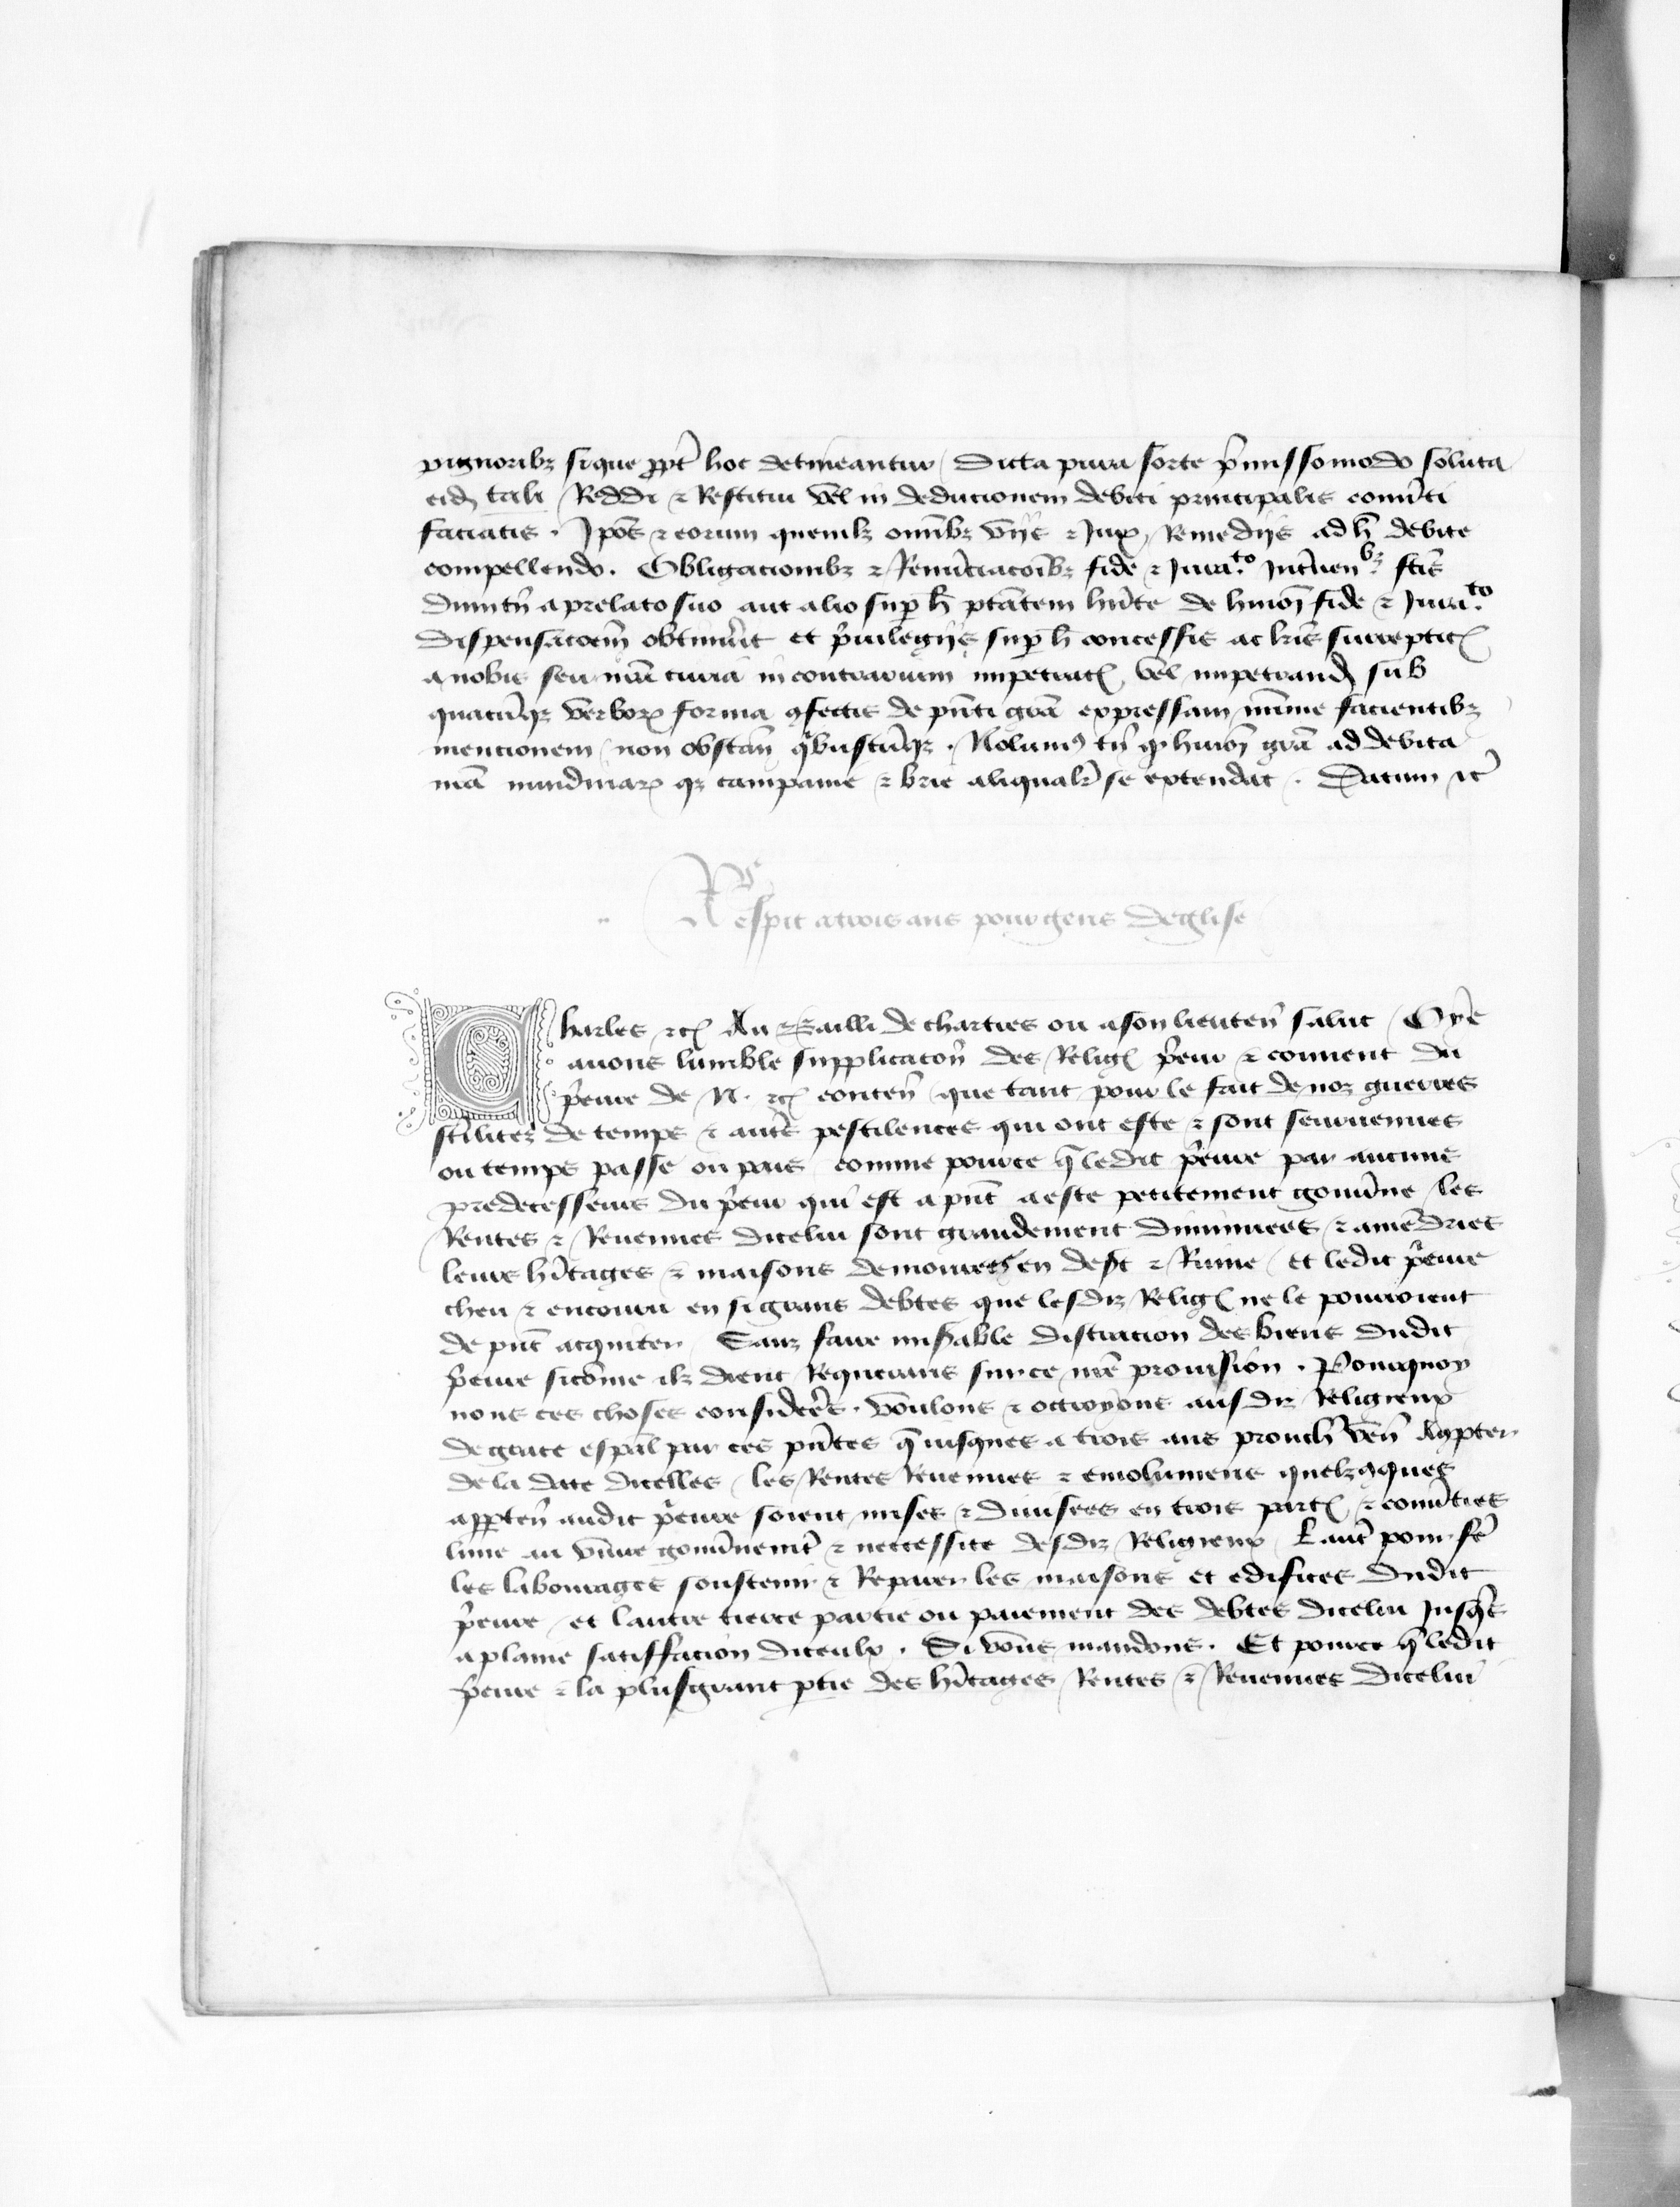 pignoribz si que ppt hoc detineantur Dicta pura sorte p̃missomodo soluta
eidẽ tali Reddi ⁊ Restitui vel in deducionem debiti principalis conũti
faciatis . Ipõs ⁊ eorum quemlz omĩbz vijs ⁊ Jur Remedijs ad h̃ debite
compellendo . Obligacionibz ⁊ Renũciacõibz fide ⁊ Jura.to Intũen.bz fcĩs
dumtñ a prelato suo aut alio sup h̃ ptãtem hñte de huiõi fide ⁊ Jura.to
dispensacoẽm obtinũit et p̃uilegijs sup h̃ concessis ac lr̃is surrepticꝭ
a nobis seu nr̃a curia in contrarium impetratꝭ vel impetrandꝭ sub
quacũqz verborꝝ forma ꝯfectis de pñti gr̃a expressam mĩme facientibz
mentionem non obstañ q̃buscũqz . Nolumꝯ tñ qꝫ huiõi gr̃a ad debita
nr̃a nundinarꝝ qz campanie ⁊ brie aliqualr̃ se extendat . Datum ⁊c̃
Respit a trois ans pour gens deglise
Charles ⁊cꝭ Au Bailli de chartres ou a son lieuteñ salut Oye
auons lumble supplicacoñ des Religꝭ p̃eur ⁊ conuent du
p̃eure de N. ⁊cꝭ conteñ que tant pour le fait de noz guerres
st̃ilitez de temps ⁊ autr̃s pestilences qui ont este ⁊ sont seuruenues
ou temps passe ou pais comme pource q̃ ledit p̃eure par aucuns
predecesseurs du p̃eur qui est a pñt a este petitement gouũne les
Rentes ⁊ Reuenues dicelui sont grandement diminuees ⁊ amẽdries
leurs hĩtages ⁊ maisons demourez en dest ⁊ Ruine et ledit p̃eure
cheu ⁊ encouru en si grans debtes que lesdiz Religꝭ ne le pourroient
de pñt acquiter Sanz faire import̃able distraction des biens dudit
p̃eure sicõme ilz dient Requerans sur ce nr̃e prouision . Pourquoy
nous ces choses considereẽs . voulons ⁊ octroyons ausdiz Religieux
de grace espãl par ces pñtes q̃ iusques a trois ans prouch̃ veñ Acpter
de la date dicelles les Rentes Reuenues ⁊ emolumens quelzꝯques
apꝑteñ audit p̃eure soient mises ⁊ diuisees en trois partꝭ ⁊ conũties
lune au viure gouũnemt̃ ⁊ neccessite desdiz Religieux Lautr̃ pour fẽ
les labourages soustenir ⁊ Reparer les maisons et edifices dudit
p̃eure et lautre tierce partie ou paiement des debtes dicelui Jusq̃s
a plaine satisfacion diceulx . Si vous mandons . Et pource q̃ ledit
p̃eure ⁊ la plusgrant ꝑtie des hĩtages Rentes ⁊ Reuenues dicelui